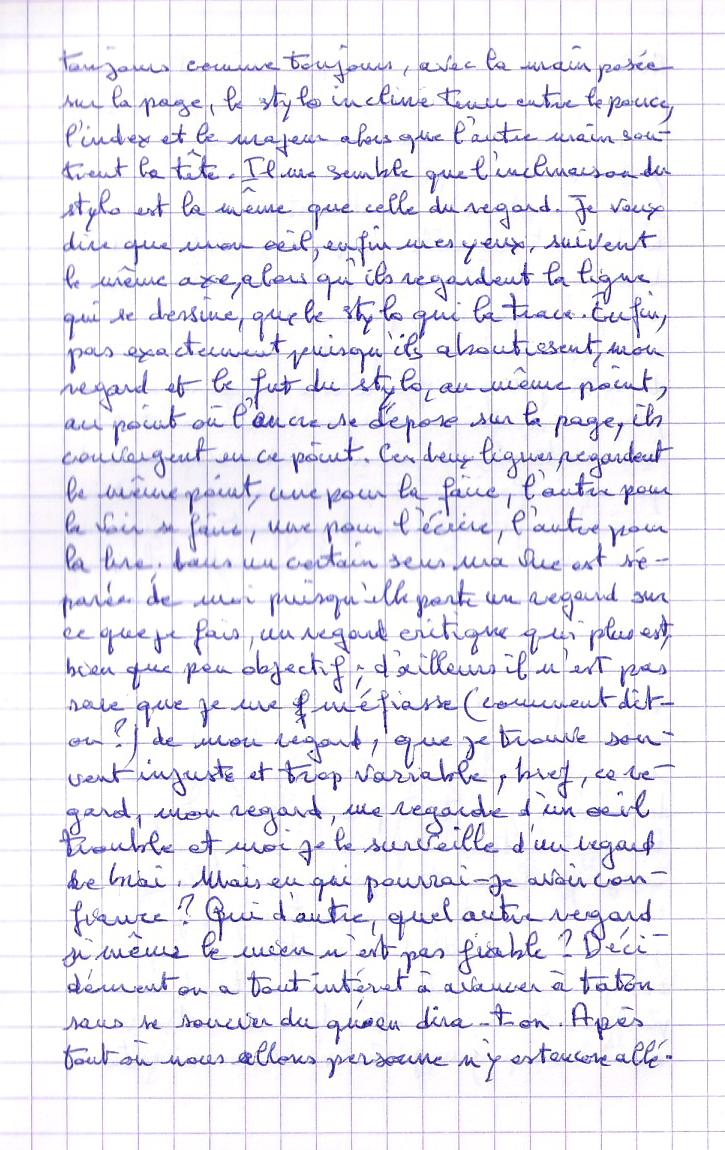 toujours comme toujours, avec la main posée
sur la page, le stylo incliné tenu entre le pouce,
l'index et le majeur alors que l'autre main sou-
tient la tête. Il me semble que l'inclinaison du
stylo est la même que celle du regard. Je veux
dire que mon oeil, enfin mes yeux, suivent
le même axe, alors qu'ils regardent la ligne
qui se dessine, que le stylo qui la trace. Enfin,
pas exactement puisqu'ils aboutissent, mon
regard et le fut du stylo, au même point,
au point où l'encre se dépose sur la page, ils
convergent en ce point. Ces deux lignes regardent
le même point, une pour la faire, l'autre pour
la voir se faire, une pour l'écrire, l'autre pour
la lire. Dans un certain sens ma vue est sé-
parée de moi puisqu'elle porte un regard sur
ce que je fais, un regard critique qui plus est,
bien que peu objectif ; d'ailleurs il n'est pas
rare que je me méfiasse (comment dit-
on ?) de mon regard, que je trouve sou-
vent injuste et trop variable, bref, ce re-
gard, mon regard, me regarde d'un oeil
trouble et moi je le surveille d'un regard
de biai. Mais en qui pourrai-je avoir con-
fiance ? Qui d'autre, quel autre regard
si même le mien n'est pas fiable ? Déci-
dément on a tout intéret à avancer à taton
sans se soucier du qu'en dira-t-on. Après
tout où nous allons personne n'y est encore allé.